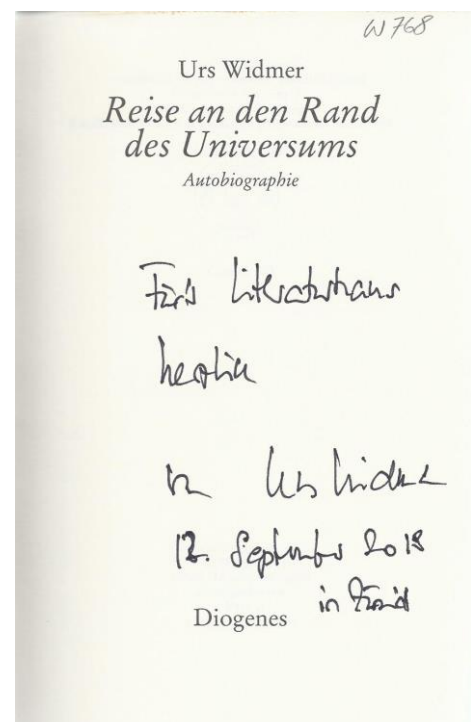 W 768
Urs Widmer
Reise an den Rand
des Universums
Autobiographie
Für's Literaturhaus
herzlich
von Urs Widmer
12. September 2013
in Zürich
Diogenes